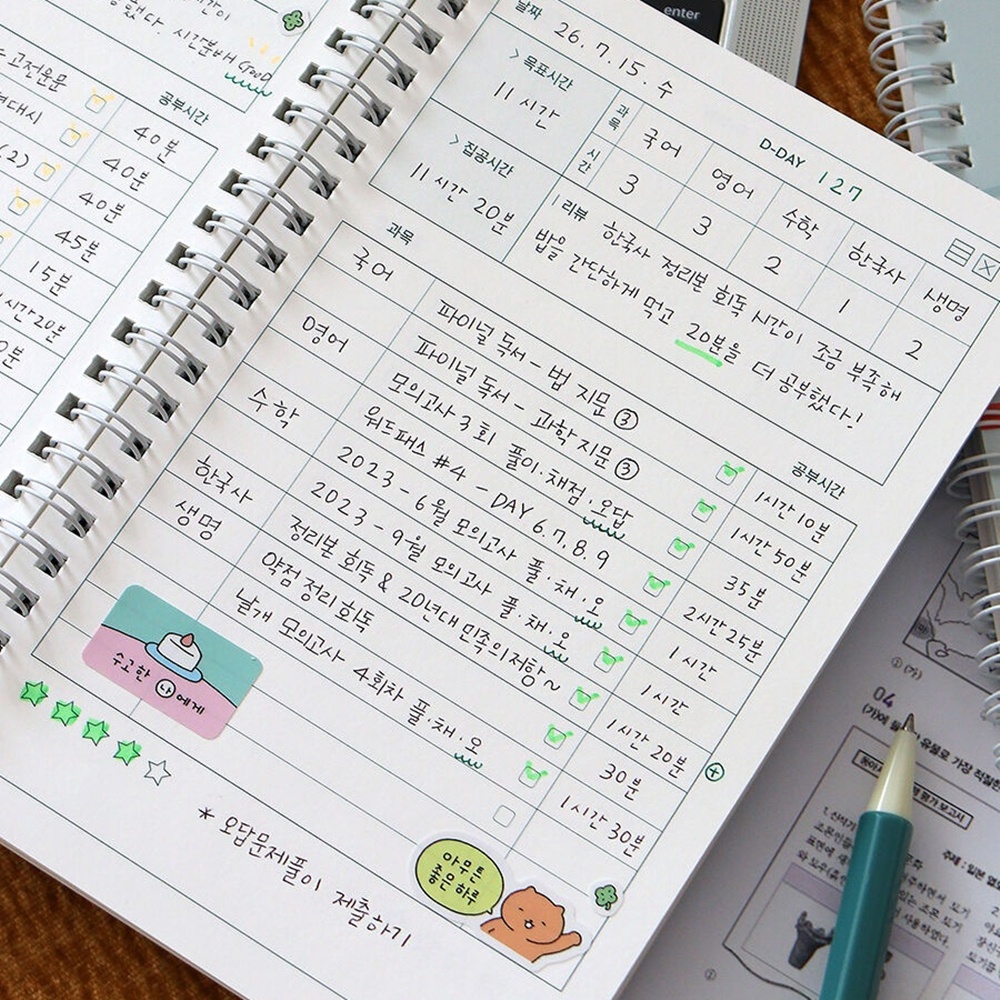 시간이
했다. 시간분배 GOOD
고전운문
공부시간
40분
현대시
40분
(2)
40분
45분
15분
시간20분
enter
날짜
26. 7. 15. 수
D-DAY 127
> 목표시간
11 시간
> 집공시간
11 시간 20분
과목
국어
영어
수학
한국사
생명
시간
3
3
2
1
2
| 리뷰
한국사 정리본 회독 시간이 조금 부족해
밥을 간단하게 먹고 20분을 더 공부했다!
과목
공부시간
국어
파이널 독서 - 법 지문 ③
1시간 10분
파이널 독서 - 과학지문 ③
1시간 50분
영어
모의고사 3회 풀이·채점·오답
35분
워드패스 #4 - DAY 6.7.8.9
2시간 25분
수학
2023 - 6월 모의고사 풀·채·오
1시간
2023 - 9월 모의고사 풀·채·오
1시간
한국사
정리본 회독 & 20년대 민족의저항~
1시간 20분
생명
약점 정리 회독
30분
날개 모의고사 4회차 풀·채·오
1시간 30분
수고한 나에게
* 오답문제풀이 제출하기
아무튼
좋은 하루
① (가)
04